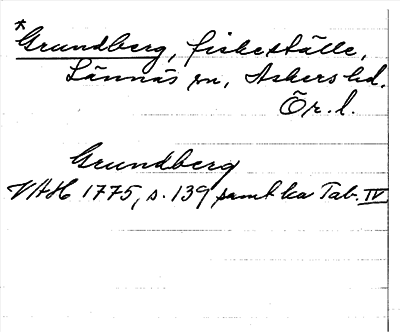 *Grundberg, fiskeställe,
Lännäs sn, Askers hd.
Ör. l.
Grundberg
VAH 1775, s. 139 samt ka Tab. IV